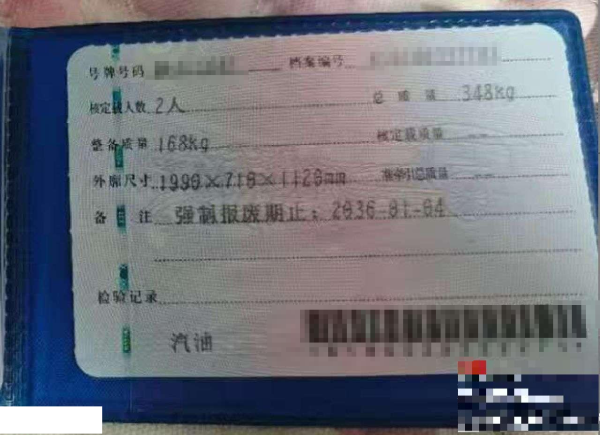 号牌号码 档案编号
核定载人数 2人 总质量 348kg
整备质量 168kg 核定载质量 --
外廓尺寸 1990×710×1120mm 准牵引总质量 --
备注 强制报废期止：2036-01-04
检验记录
汽油